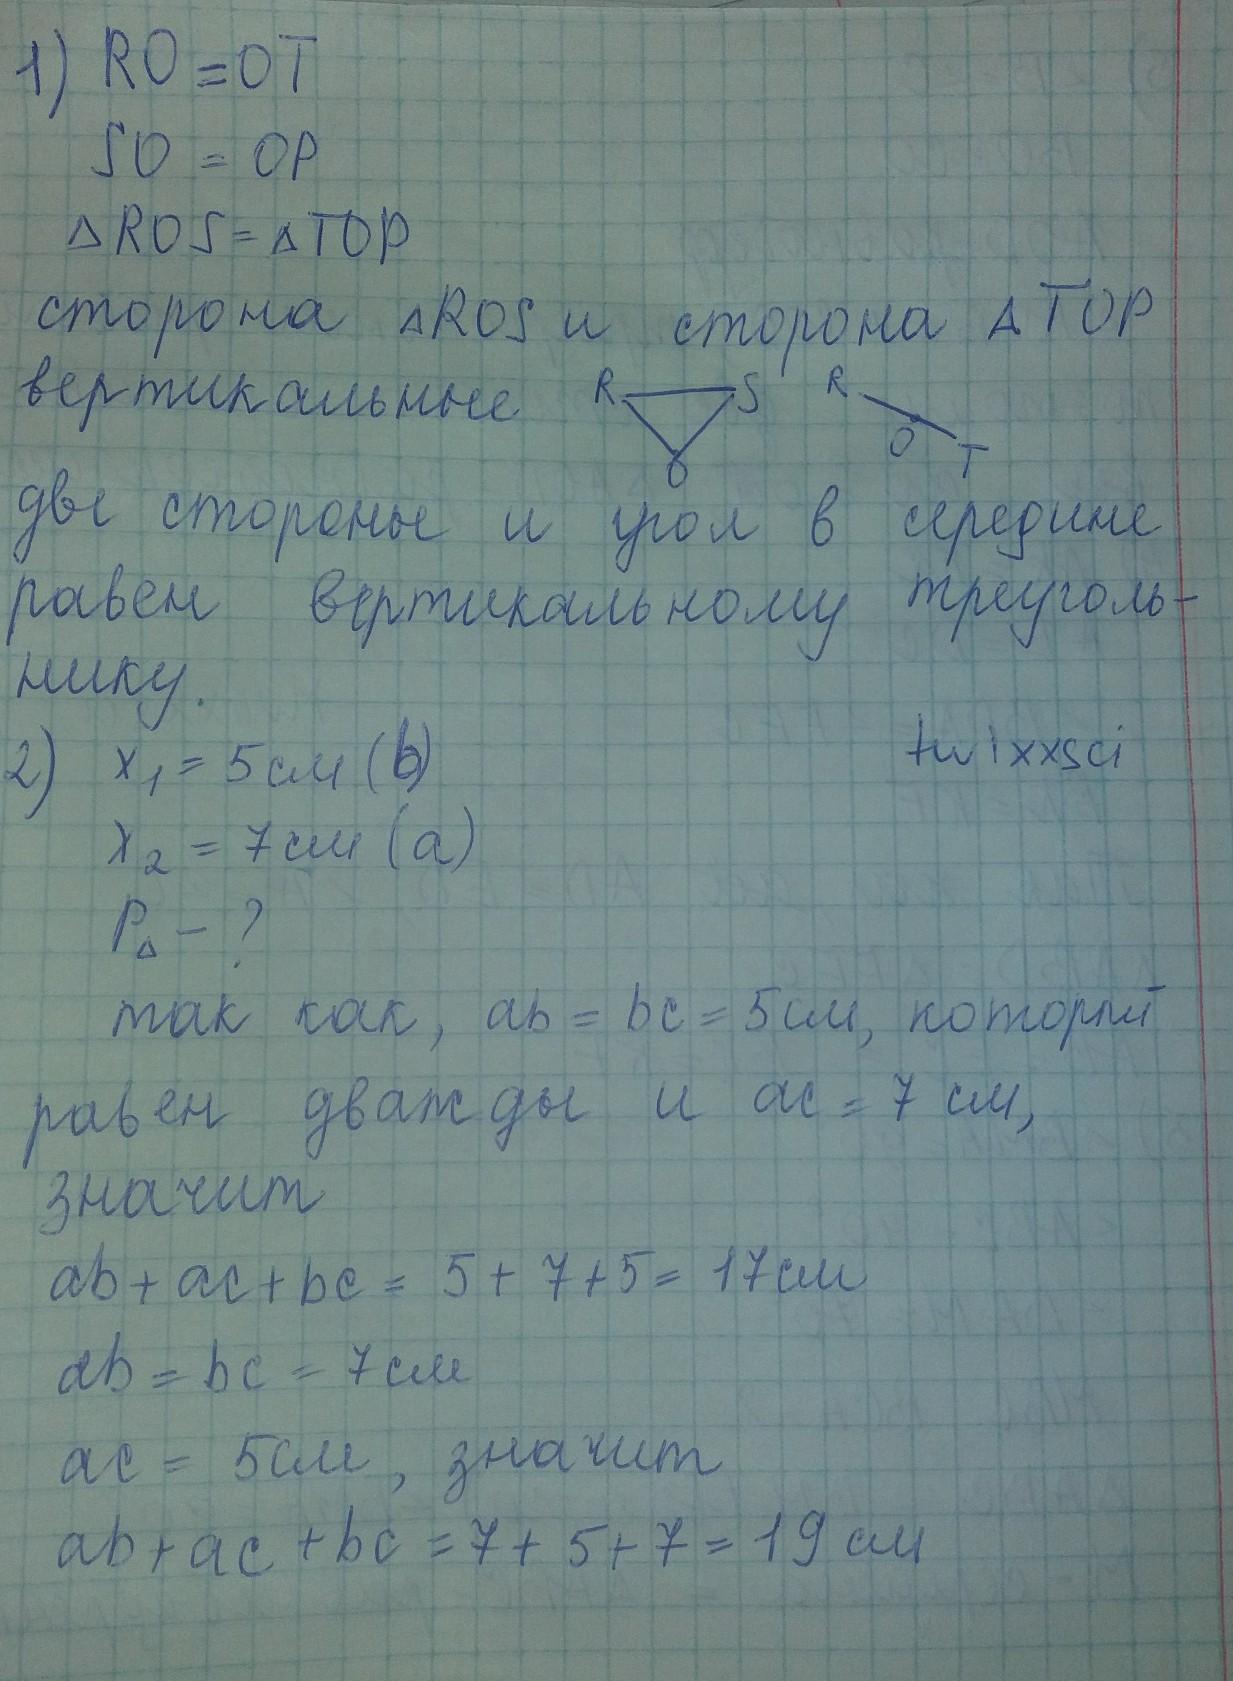 1) RO = OT
SO = OP
△ROS = △TOP
сторона △ROS и сторона △TOP
вертикальные R S O R O T
две стороны и угол в середине
равен вертикальному треуголь-
нику.
2) x₁ = 5 см (b)
twixxsci
x₂ = 7 см (a)
P△ - ?
так как, ab = bc = 5 см, который
равен дважды и ac = 7 см,
значит
ab + ac + bc = 5 + 7 + 5 = 17 см
ab = bc = 7 см
ac = 5 см, значит
ab + ac + bc = 7 + 5 + 7 = 19 см